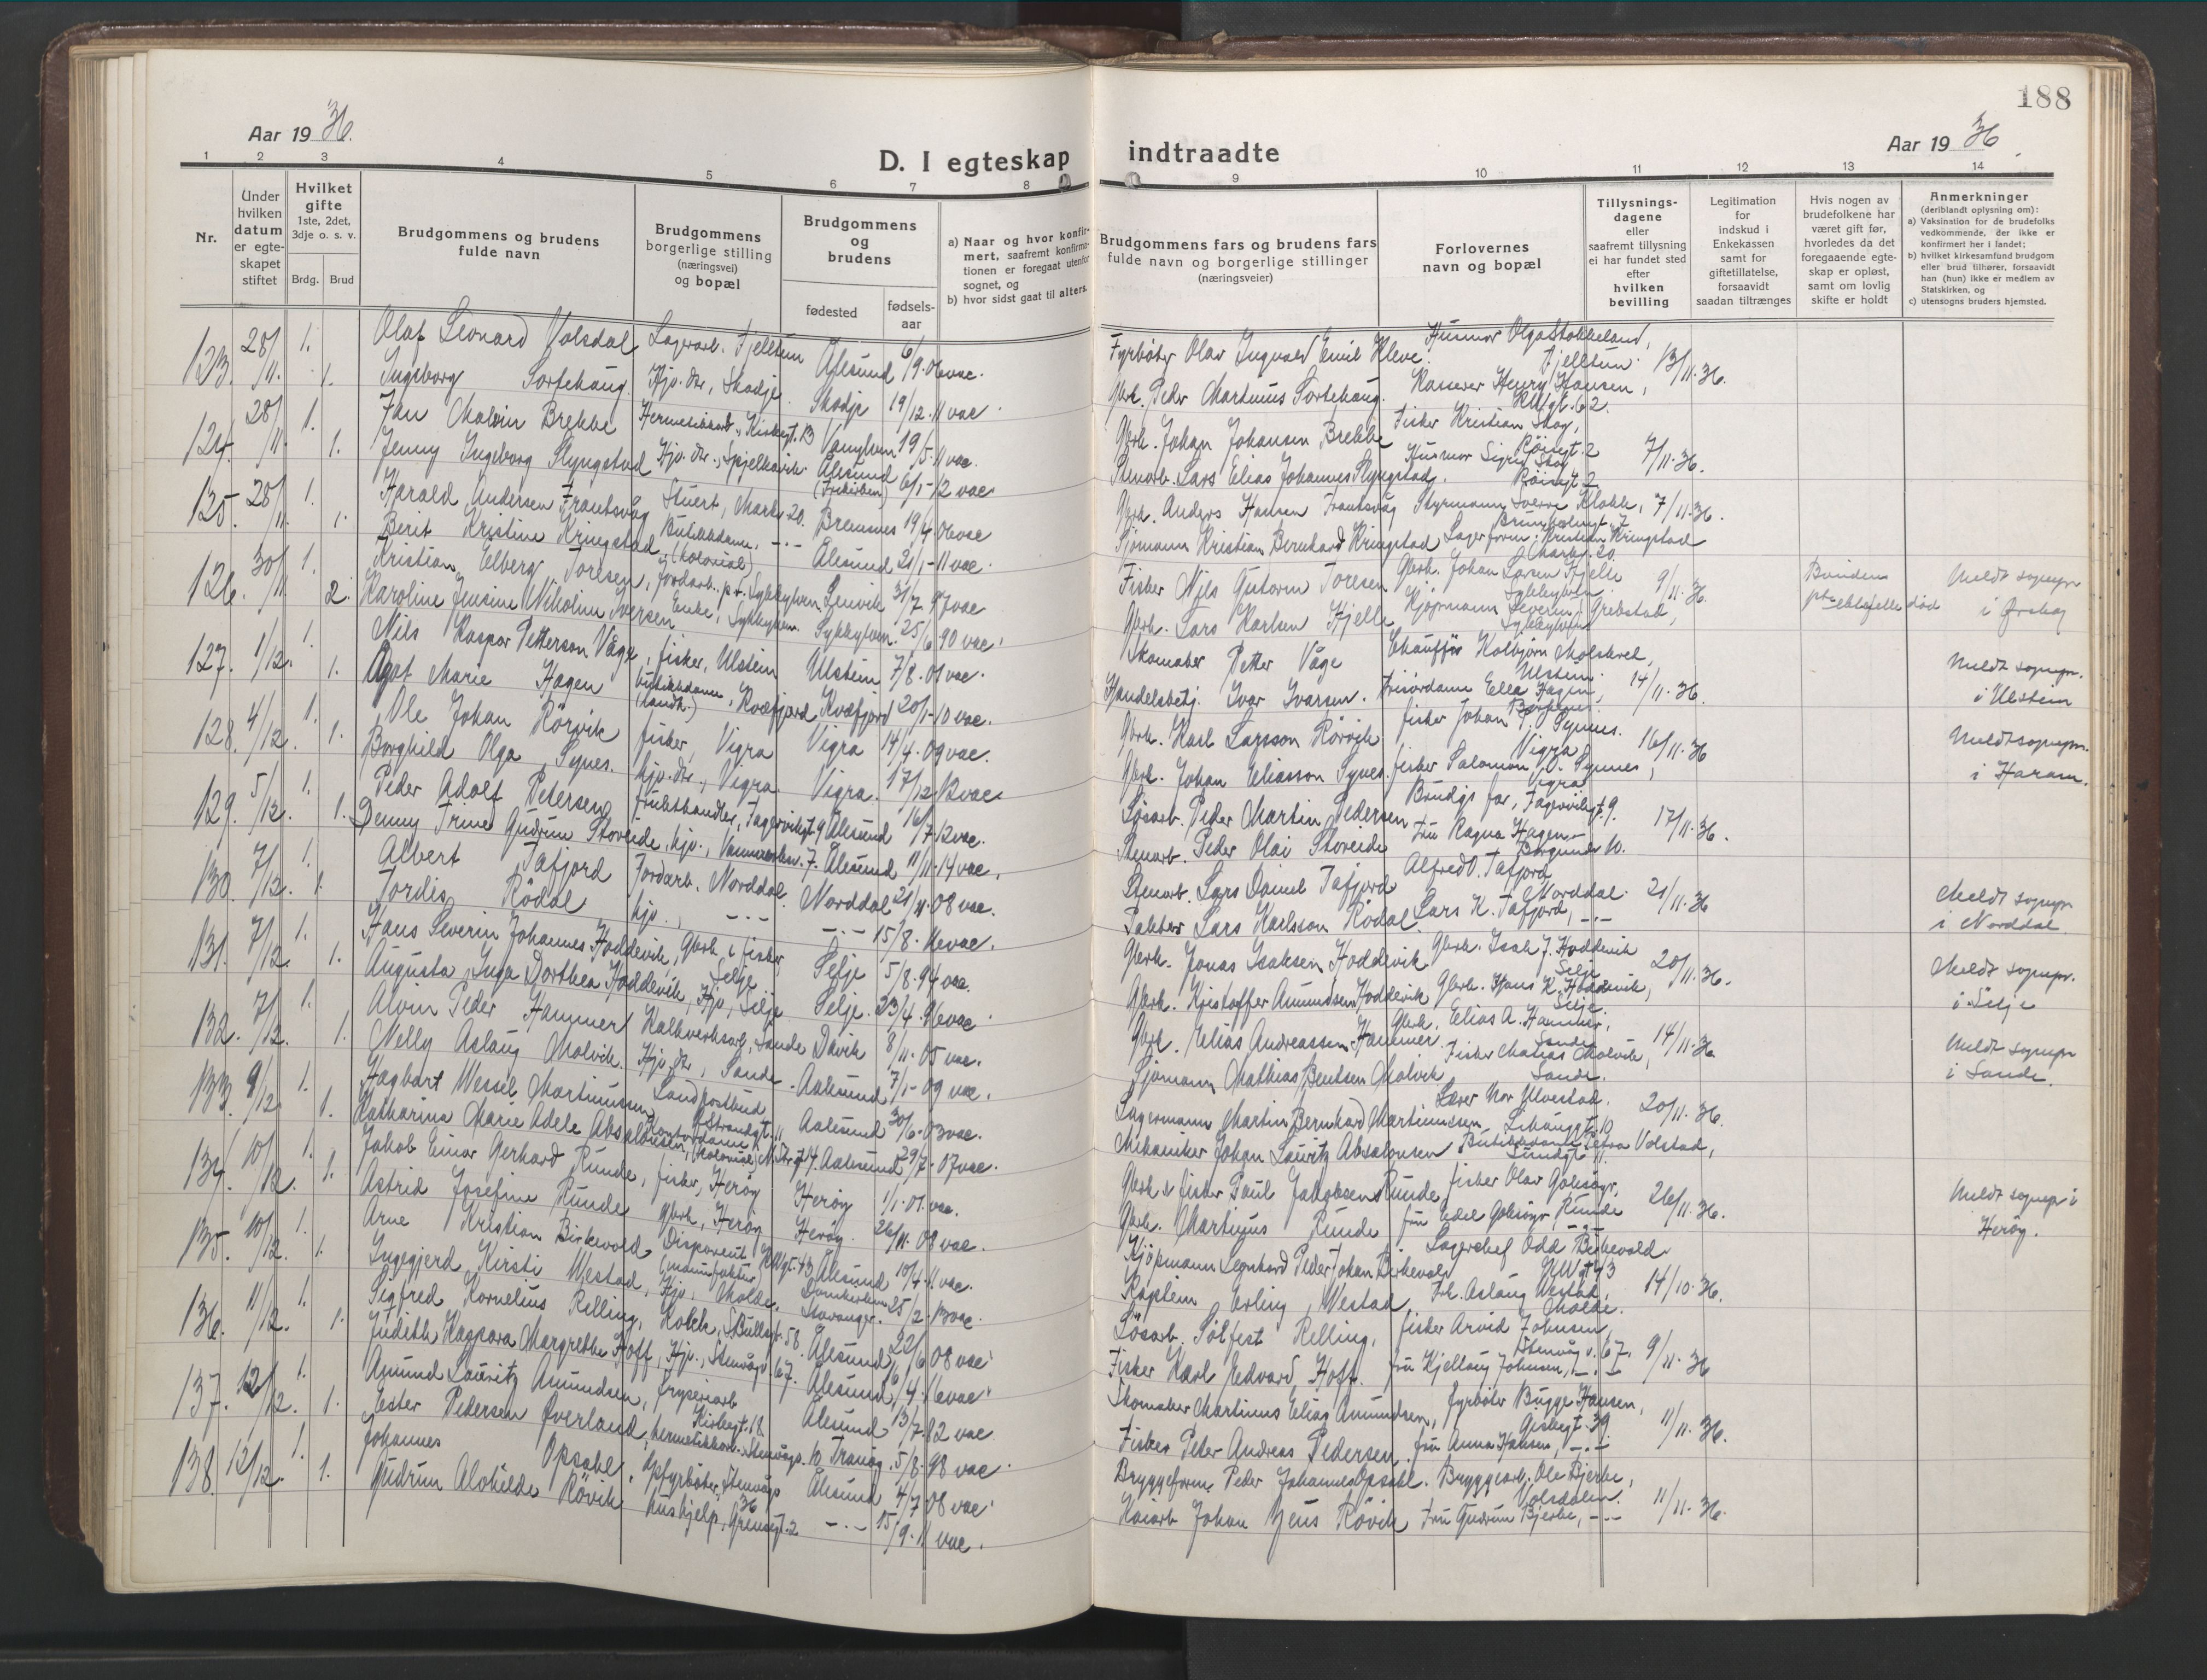 188
Aar 19 36.
Aar 19 36.
D. I egteskap indtraadte
1 2 3 4 5 6 7 8 9 10 11 12 13 14
Nr.
Under
hvilken
datum
er egte-
skapet
stiftet
Hvilket
gifte
1ste, 2det,
3dje o. s. v.
Brdg. Brud
Brudgommens og brudens
fulde navn
Brudgommens
borgerlige stilling
(næringsvei)
og bopæl
Brudgommens
og
brudens
fødested
fødsels-
aar
a) Naar og hvor konfir-
mert, saafremt konfirma-
tionen er foregaat utenfor
sognet, og
b) hvor sidst gaat til alters.
Brudgommens fars og brudens fars
fulde navn og borgerlige stillinger
(næringsveier)
Forlovernes
navn og bopæl
Tillysnings-
dagene
eller
saafremt tillysning
ei har fundet sted
efter
hvilken
bevilling
Legitimation
for
indskud i
Enkekassen
samt for
giftetillatelse,
forsaavidt
saadan tiltrænges
Hvis nogen av
brudefolkene har
været gift før,
hvorledes da det
foregaaende egte-
skap er opløst,
samt om lovlig
skifte er holdt
Anmerkninger
(deriblandt oplysning om):
a) Vaksination for de brudefolks
vedkommende, der ikke er
konfirmert her i landet;
b) hvilket kirkesamfund brudgom
eller brud tilhører, forsaavidt
han (hun) ikke er medlem av
Statskirken, og
c) utensogns bruders hjemsted.
123. 28/11. 1. Olaf Leonard Volsdal Lagerarb. Fjelltun Ålesund 6/9.06 vac. Fyrbøter Olav Ingvald Emil Kleve. Husmor Olga Stokkeland, Fjelltun. 13/11.36.
1. Ingeborg Sortehaug Hjv. dtr., Skodje. Skodje 19/12.11 vac. Gbrk. Peder Martinus Sortehaug. Kasserer Henry Hansen,
124. 28/11. 1. Jan Malvin Brekke Kirkegt. 13 Vanylven 19/5.11 vac. Gbrk. Johan Johansen Brekke Fisker Kristian Skog, Røisegt. 2 7/11.36.
1. Jenny Ingeborg Slyngstad Hjv. dtr., Spjelkavik. Ålesund 6/1-12 vac. Stenarb. Lars Elias Johannes Slyngstad. Husmor Sigrid Skog Røisegt. 2
125. 28/11. 1. Harald Andersen Frantsvåg Stuert, Markv. 20. Bremsnes 19/4.06 vac Gbrk. Anders Hansen Frantsvåg Styrmann Sverre Klokk, 7/11.36.
1. Berit Kristine Kringstad Butikkdame, (kolonial) -"- Ålesund 21/1-11 vac. Sjømann Kristian Bernhard Kringstad Lagerform. Kristian Kringstad Markv. 20
126. 30/11 1. Kristian Elberg Toresen, Jordarb. p.t. Sykkylven Lenvik 31/7.97 vac Fisker Nils Gutorm Toresen Gbrk. Johan Larsen Hjelle Sykkylven. 9/11.36. Bruden ektefelle død Meldt sognepr. i Ørskog
2. Karoline Jensine Nikoline Iversen Enke, Sykkylven. Sykkylven. 25/6.90 vac. Gbrk. Lars Karlsen Hjelle Kjøpmann Severin Grebstad, Sykkylven
127. 1/12. 1. Nils Kaspar Petterson Våge, fisker, Ulstein Ulstein 7/8.01 vac. Skomaker Petter Våge Chauffør Kolbjørn Molskred, Ulstein. 14/11.36. Meldt sognepr. i Ulstein
1. Agot Marie Hagen butikkdame (landh.), Kvæfjord Kvæfjord 20/1-10 vac. Handelsbetj. Ivar Ivarsen. Frisørdame Ella Hagen,
128. 4/12. 1. Ole Johan Rörvik fisker, Vigra Vigra 14/4.09 vac. Gbrk. Karl Larsson Rörvik fisker Johan P. Synnes. Vigra 16/11.36 Meldt sognepr. i Haram.
1. Borghild Olga Synes. hjv. dtr., Vigra Vigra. 17/12.12 vac. Gbrk. Johan Eliasson Synes. fisker Salomon O. Synnes, Vigra
129. 5/12. 1. Peder Adolf Petersen frukthandler, Fagervikgt. 9 Ålesund 16/7.12 vac. Løsarb. Peder Martin Pedersen Brudgs far, Fagervikgt. 9. 17/11.36.
1. Denny Trine Gudrun Stoveide, hjv., 7. Ålesund 11/11.14 vac. Stenarb. Peder Olai Stoveide Fru Ragna Hagen Borgundv. 10.
130. 7/12. 1. Albert Tafjord Jordarb. Norddal. Norddal 21/11.08 vac. Stenarb. Lars Daniel Tafjord Alfred O. Tafjord Norddal. 21/11.36 Meldt sognepr. i Norddal
1. Tordis Rödal hjv., -"- -"- 15/8.16 vac. Pakter Lars Karlsson Rödal. Lars K. Tafjord, -"-
131. 7/12. 1. Hans Severin Johannes Hoddevik, Gbrk & fisker, Selje Selje 5/8.94 vac. Gbrk. Jonas Isaksen Hoddevik Gbrk. Isak J. Hoddevik Selje 20/11.36. Meldt sognepr. i Selje
1. Augusta Inga Dorthea Hoddevik, Hjv, Selje Selje. 23/4.96 vac Gbrk. Kristoffer Amundsen Hoddevik Gbrk. Hans K. Hoddevik, Selje.
132. 7/12. 1. Alvin Peder Hammer Kalkverksarb, Sande Davik 8/11.05 vac. Gbrk. Elias Andreassen Hammer. Gbrk. Elias A. Hammer, Sande 14/11.36. Meldt sognepr i Sande.
1. Nelly Aslaug Molvik. Hjv. dtr, Sande. Aalesund 7/1-09 vac. Sjømann Mathias Bentsen Molvik Fisker Matias Molvik, Sande.
133. 9/12 1. Hagbart Wessel Martinussen Landpostbud Strandgt. 11 Aalesund 30/6-03 vac. Lagermann Martin Bernhard Martinussen Lærer Nor Ulvestad. Lihauggt. 10 20/11.36.
1. Katharina Marie Adele Absalonsen Kontordame (kolonial) Aalesund 29/7-07 vac. Mekaniker Johan Lauritz Absalonsen Butikkdame Petra Volstad,
134. 10/12. 1. Jakob Einar Gerhard Runde, fisker, Herøy Herøy 1/1.01. vac. Gbrk & fisker Paul Jakobsen Runde fisker Olav Goksøyr, Runde 26/11.36. Meldt sognepr i Herøy.
1. Astrid Josefine Runde Gbrk, Herøy Herøy. 26/11.08 vac. Gbrk. Martinus Runde fru Edel Goksøyr -"-
135. 10/12. 1. Arne Kristian Birkevold Disponent (manufaktur) 43 Ålesund 10/4.11 vac. Kjøpmann Leonhard Peder Johan Birkevold Lagerchef Odd Birkevold 43 14/10.36.
1. Ingegjerd Kirsti Westad, Hjv, Molde. Domkirken Stavanger. 25/2.13 vac. Kaptein Erling Westad Frk. Aslaug Westad, Molde.
136. 11/12. 1. Sigfred Kornelius Relling, Kokk, 58. Ålesund 22/6 08 vac. Løsarb. Sølfest Relling, fisker Arvid Johnsen, Stenvågv. 67. 9/11.36
1. Judith Kaspara Margrethe Hoff, Hjv., Stenvågv. 67. Ålesund 1/4.16 vac. Fisker Karl Edvard Hoff. fru Kjellaug Johnsen, -"-
137. 12/12. 1. Amund Lauritz Amundsen, fryseriarb Kirkegt. 18. Ålesund 13/7.82 vac Skomaker Martinus Elias Amundsen, fyrbøter Bugge Hansen, Giskegt. 39 11/11.36.
1. Ester Pedersen Øverland, Stenvågv. 10 Tranøy. 5/8.98 vac. Fisker Peder Andreas Pedersen. fru Anna Hansen, -"-
138. 12/12. 1. Johannes Opsahl. fyrbøter, Stenvågv 36 Ålesund 4/7 08 vac. Bryggeform. Peder Johannes Opsahl. Bryggearb. Ole Bjerke, Volsdalen. 11/11.36.
1. Gudrun Alvhilde Rövik hushjelp, Grensegt. 2 -"- 15/9.11 vac. Kaiarb Johan Jens Rövik Fru Gudrun Bjerke, -"-